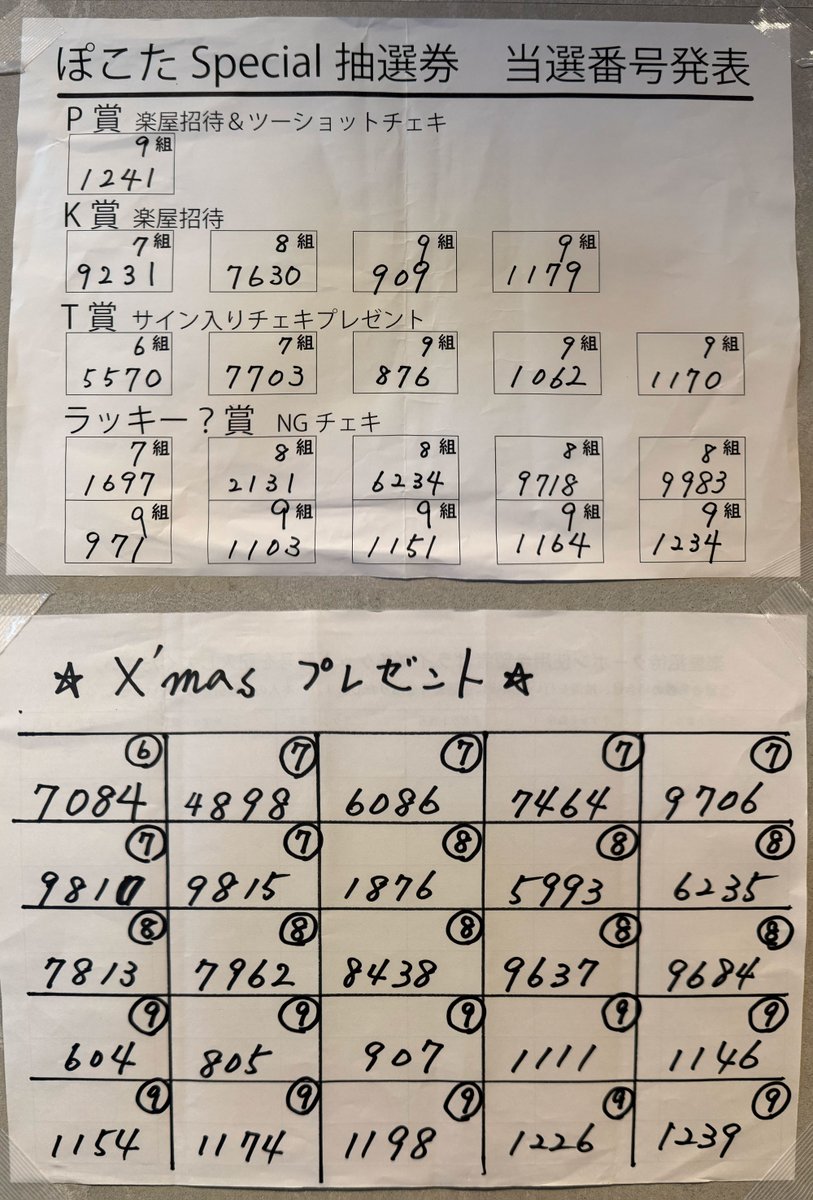 ぽこた Special 抽選券　当選番号発表
P 賞 楽屋招待＆ツーショットチェキ
9組
1241
K 賞 楽屋招待
7組 8組 9組 9組
9231 7630 909 1179
T 賞 サイン入りチェキプレゼント
6組 7組 9組 9組 9組
5570 7703 876 1062 1170
ラッキー？賞 NG チェキ
7組 8組 8組 8組 8組
1697 2131 6234 9718 9983
9組 9組 9組 9組 9組
971 1103 1151 1164 1234
☆ X'mas プレゼント☆
⑥ ⑦ ⑦ ⑦ ⑦
7084 4898 6086 7464 9706
⑦ ⑦ ⑧ ⑧ ⑧
981 9815 1876 5993 6235
⑧ ⑧ ⑧ ⑧ ⑧
7813 7962 8438 9637 9684
⑨ ⑨ ⑨ ⑨ ⑨
604 805 907 1111 1146
⑨ ⑨ ⑨ ⑨ ⑨
1154 1174 1198 1226 1239